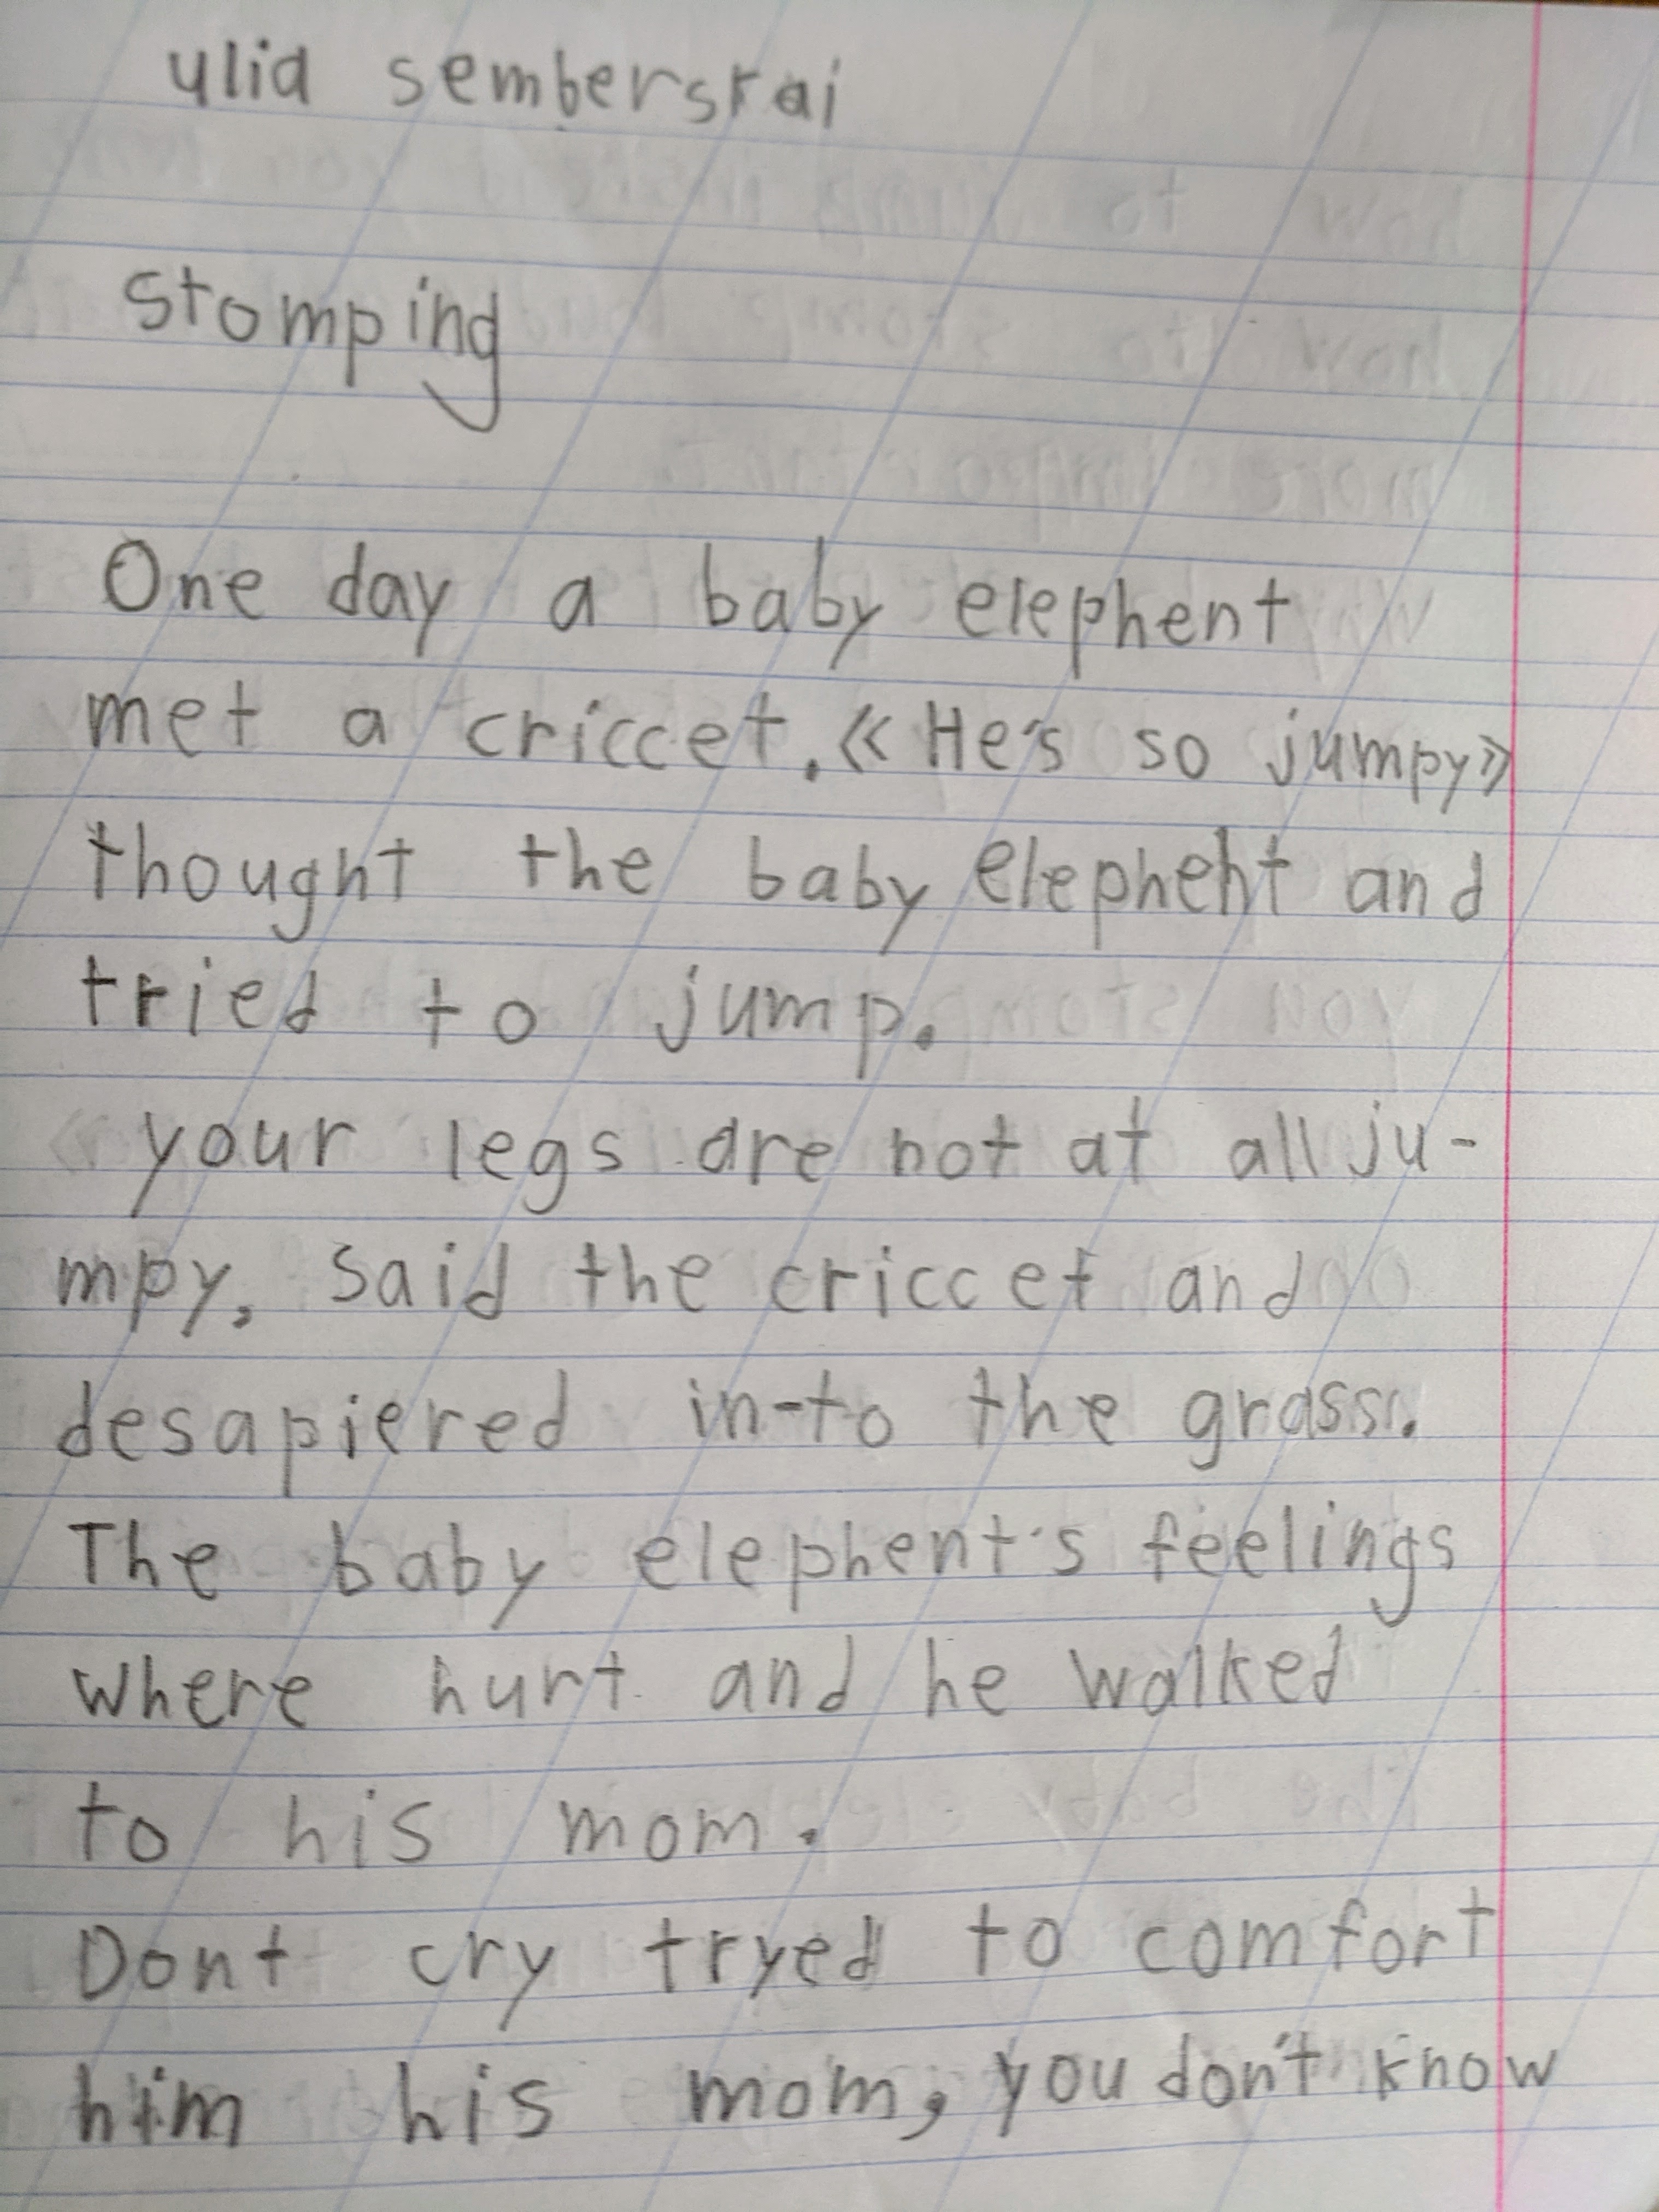 ulia semberskai
stomping
One day a baby elephent
met a criccet. « He's so jumpy»
thought the baby elephent and
tried to jump.
« your legs are not at all ju-
mpy, said the criccet and
desapiered in-to the grass.
The baby elephent's feelings
where hurt and he walked
to his mom.
Dont cry tryed to comfort
him his mom, you don't know